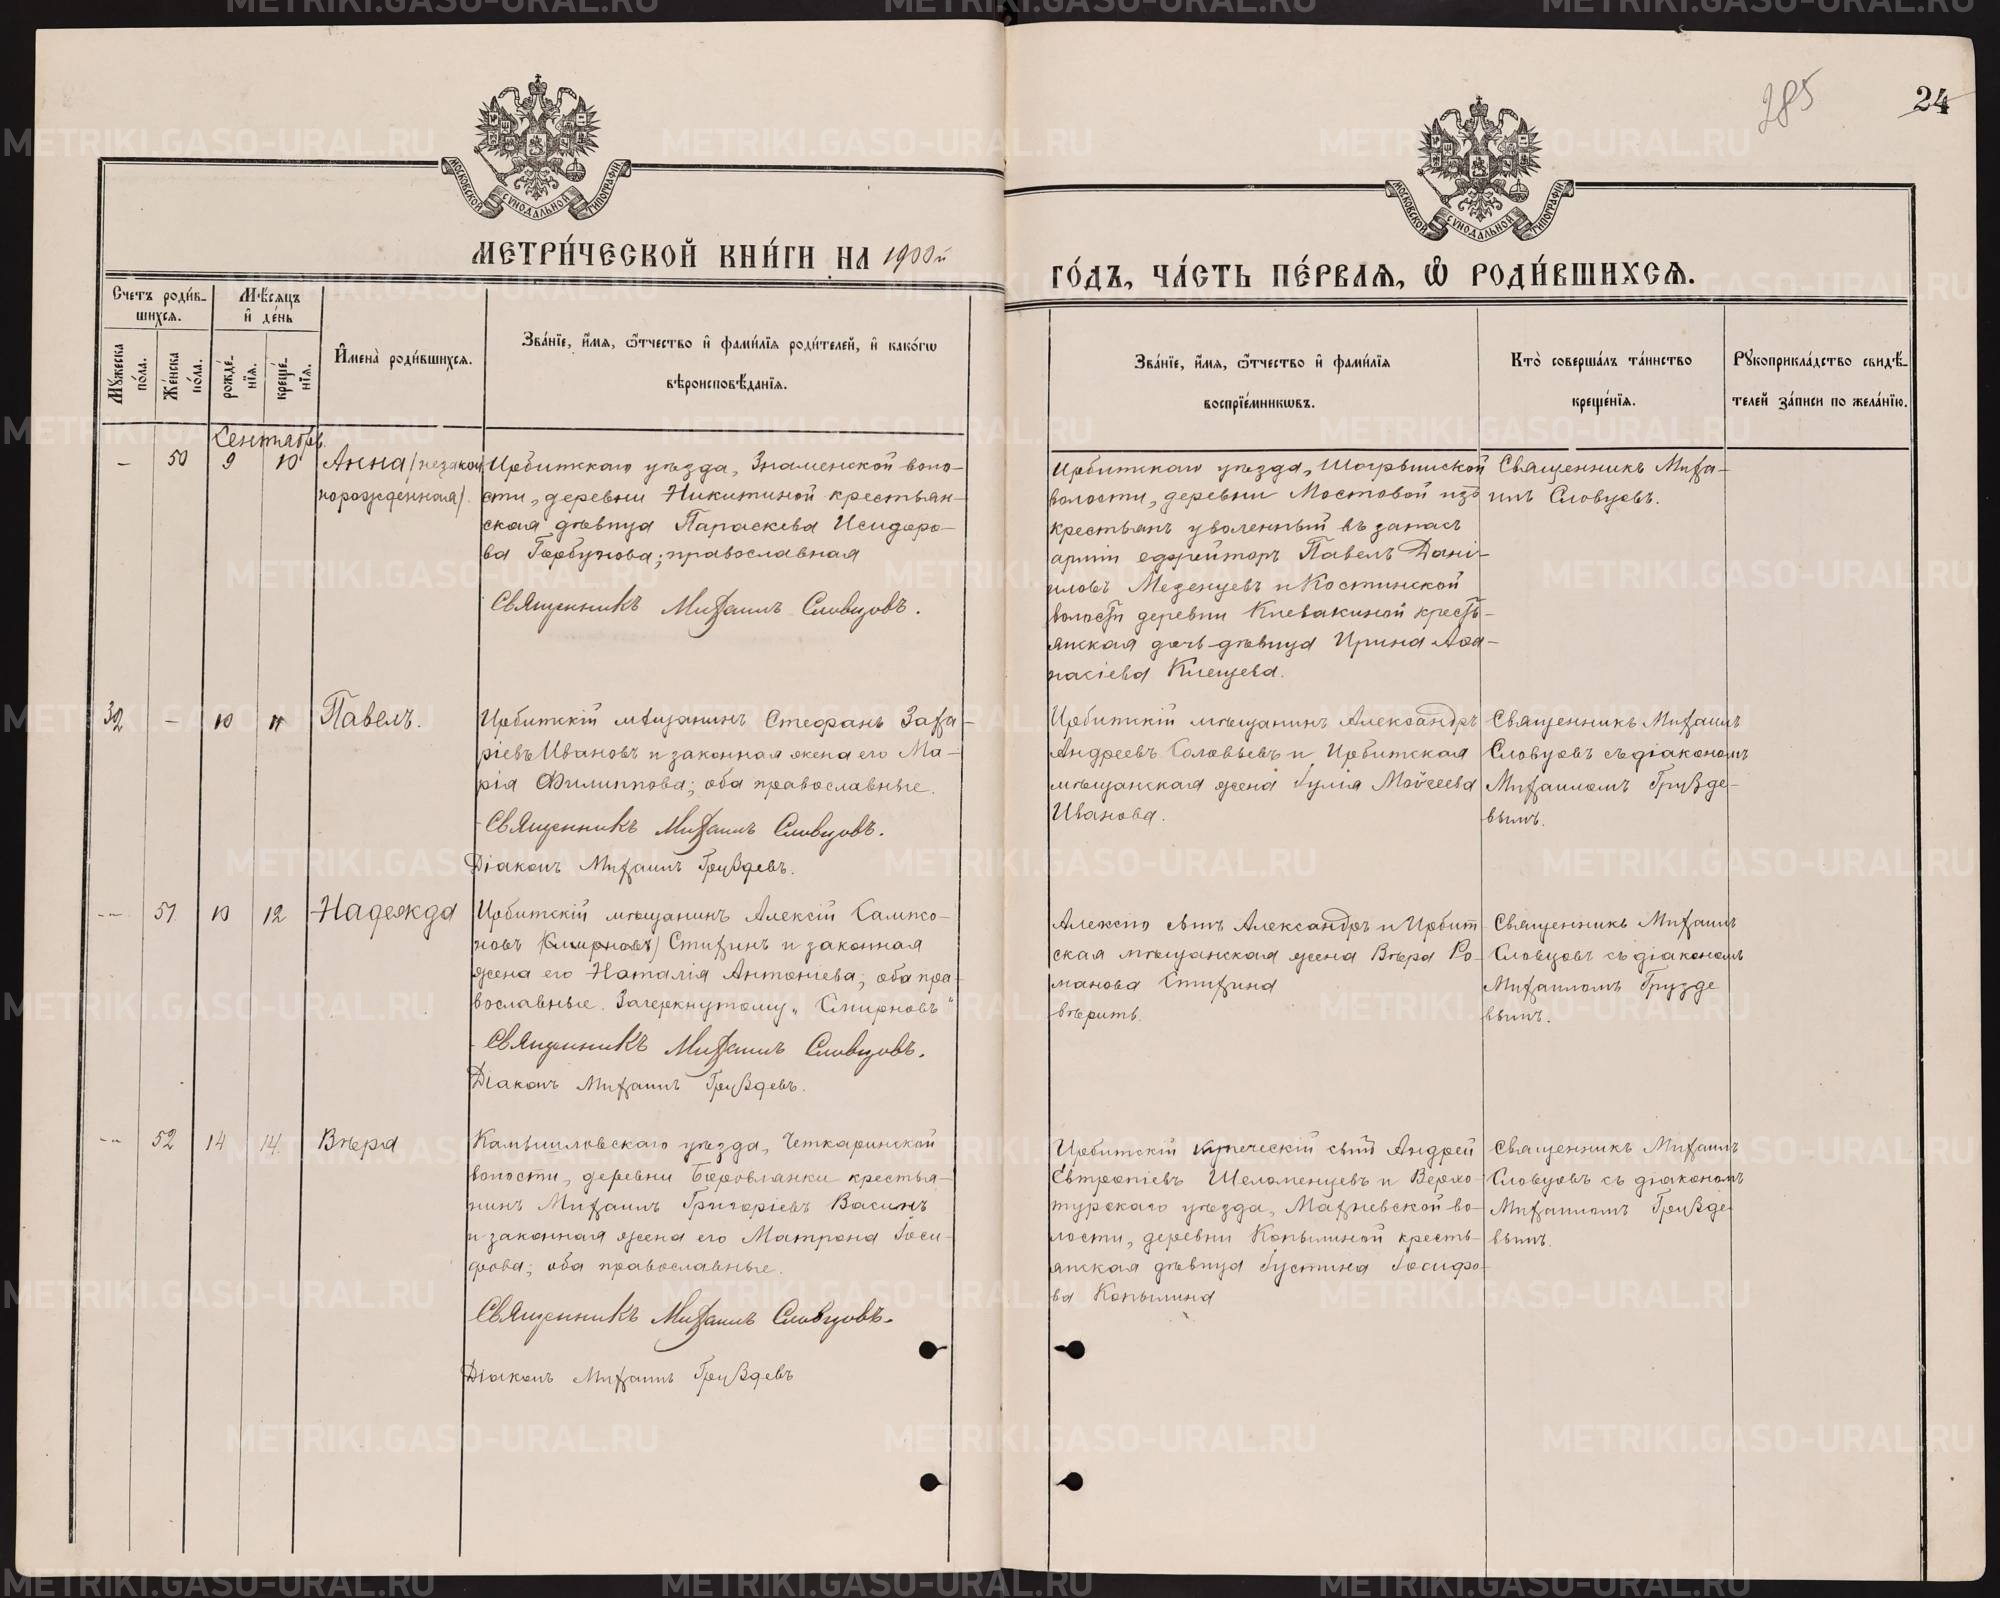 285
24
МОСКОВСКОЙ СѴНОДАЛЬНОЙ ТИПОГРАФІИ
МОСКОВСКОЙ СѴНОДАЛЬНОЙ ТИПОГРАФІИ
МЕТРИ́ЧЕСКОЙ КНИ́ГИ НА 1900й
ГО́ДЪ, ЧА́СТЬ ПЕ́РВАѦ, Ѽ РОДИ́ВШИХСѦ.
Счетъ роди́в-
шихсѧ.
Мѣ́сѧцъ
и҆ де́нь
Мꙋжеска по́ла.
Же́нска по́ла.
рожде́-
нїѧ.
креще́-
нїѧ.
И҆мена̀ роди́вшихсѧ.
Зва́нїе, и҆́мѧ, ѻ҆́тчество и҆ фами́лїѧ роди́телей, и҆ како́гѡ
вѣроисповѣ́данїѧ.
Зва́нїе, и҆́мѧ, ѻ҆́тчество и҆ фами́лїѧ
воспрїе́мникѡвъ.
Кто̀ соверша́лъ та́инство
креще́нїѧ.
Рꙋкоприкла́дство свидѣ́-
телей за́писи по жела́нїю.
Сентябрь
— 50 9 10 Анна (незакон
норожденная).
Ирбитскаго уѣзда, Знаменской воло-
сти, деревни Никитиной крестьян-
ская дѣвица Параскева Исидоро-
ва Горбунова; православная
Священникъ Михаилъ Словцовъ.
Ирбитскаго уѣзда, Шогришской
волости, деревни Мостовой изъ
крестьянъ уволенный въ запасъ
арміи ефрейторъ Павелъ Дани-
ловъ Мезенцевъ и Костинской
волости деревни Клевакиной кресть-
янская дочь-дѣвица Ирина Аѳа-
насіева Клещева.
Священникъ Миха-
илъ Словцовъ.
32 — 10 11 Павелъ.
Ирбитскій мѣщанинъ Стефанъ Заха-
ріевъ Ивановъ и законная жена его Ма-
рія Филиппова; оба православные.
Священникъ Михаилъ Словцовъ.
Діаконъ Михаилъ Груздевъ.
Ирбитскій мѣщанинъ Александръ
Андреевъ Соловьевъ и Ирбитская
мѣщанская жена Іулія Мойсеева
Иванова.
Священникъ Михаилъ
Словцовъ съ діакономъ
Михаиломъ Грузде-
вымъ.
-- 51 10 12 Надежда
Ирбитскій мѣщанинъ Алексій Сампсо-
новъ (Смирновъ) Стихинъ и законная
жена его Наталія Антоніева; оба пра-
вославные. Зачеркнутому „Смирновъ“
Священникъ Михаилъ Словцовъ.
Діаконъ Михаилъ Груздевъ.
Александръ и Ирбит
ская мѣщанская жена Вѣра Ро-
манова Стихина
вѣрить.
Священникъ Михаилъ
Словцовъ съ діакономъ
Михаиломъ Грузде
вымъ.
-- 52 14 14 Вѣра
Камышловскаго уѣзда, Четкаринской
волости, деревни Боровлянки крестья-
нинъ Михаилъ Григоріевъ Васинъ
и законная жена его Матрона Іоси-
фова; оба православные.
Священникъ Михаилъ Словцовъ.
Діаконъ Михаилъ Груздевъ
Ирбитскій купеческій сынъ Андрей
Евтропіевъ Шеломенцевъ и Верхо-
турскаго уѣзда, Махневской во-
лости, деревни Копылиной кресть-
янская дѣвица Іустина Іосифо-
ва Копылина
Священникъ Михаилъ
Словцовъ съ діакономъ
Михаиломъ Груздe
вымъ.
METRIKI.GASO-URAL.RU